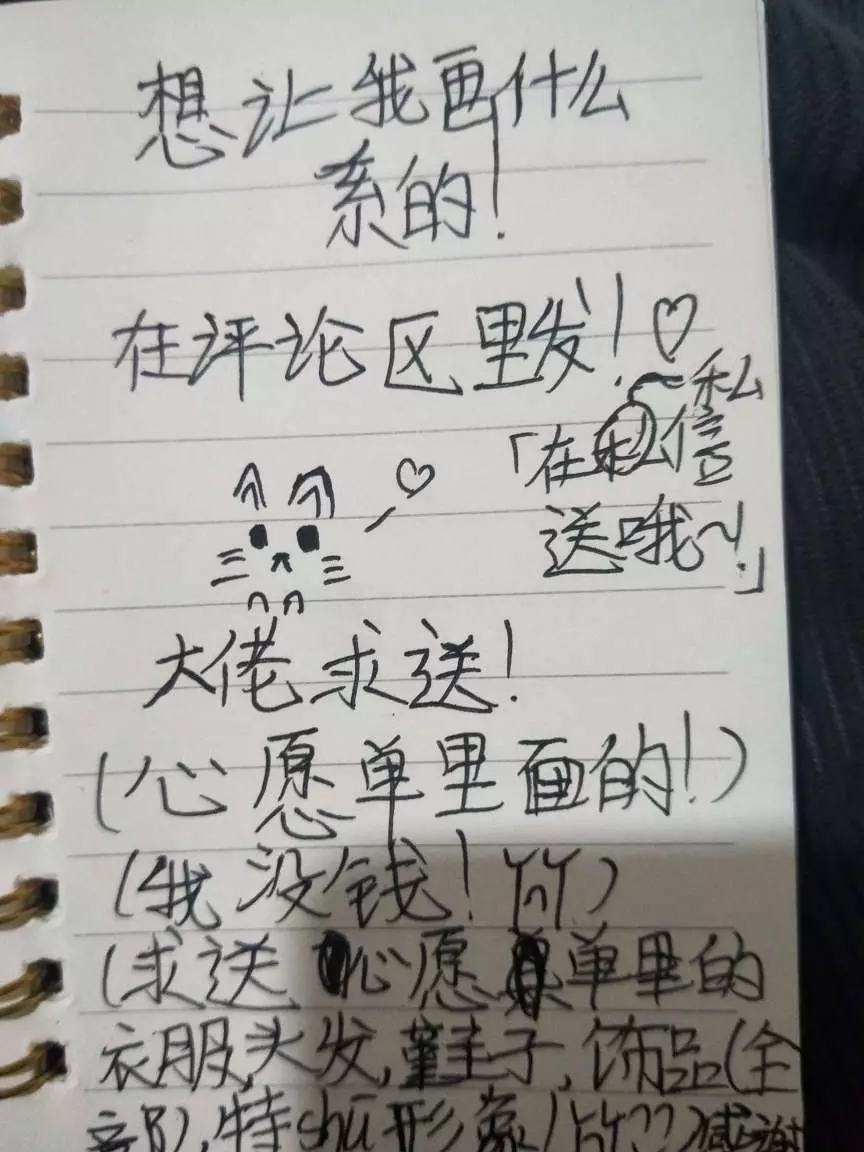 想让我画什么
系的!
在评论区里发!♡
私
「在私信
送哦~!」
大佬求送!
(心愿单里面的!)
(我没钱!)
(求送心愿单里的
衣服,头发,鞋子,饰品(全
部),特shū形象!??)感谢